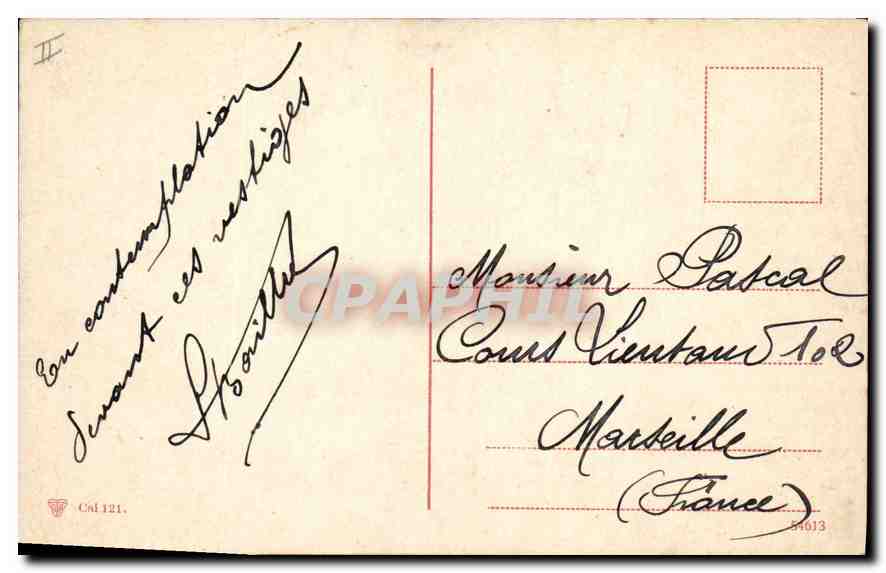 II
En contemplation
devant ces vestiges
Monsieur Pascal
Cours Lieutaud 102
Marseille
(France)
CPAPHIL
Cal 121.
54613